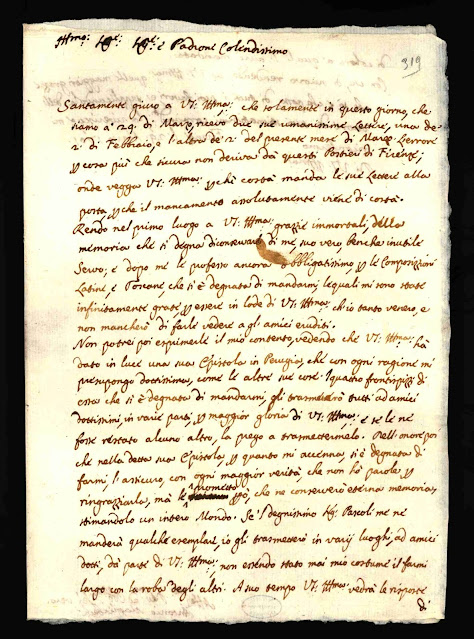 Illmo: Sigre: Sigre: e Padrone Colendissimo
319
Santamente giuro a VS: Illma: che solamente in questo giorno, che
siamo a' 29. di Marzo, ricevo due sue umanissime Lettere, una de'
2: di Febbraio, e l'altra de' 2: del presente mese di Marzo. L'errore
p cosa più che sicura non deriva da questi Postieri di Firenze;
onde vegga VS: Illma: p chi costà manda le sue Lettere alla
posta, p che il mancamento assolutamente viene di costà.
Rendo nel primo luogo a VS: Illma: grazie immortali, della
memoria che si degna di conservare di me, suo vero, benche inutile
Servo; e dopo me le professo ancora obbligatissimo p le Composizioni
Latine, e Toscane, che si è degnata di mandarmi, le quali mi sono state
infinitamente grate, p essere in lode di VS: Illma: ch'io tanto venero, e
non mancherò di farle vedere a gli amici eruditi.
Non potrei poi esprimerle il mio contento, vedendo che VS: Illma: ha
dato in luce una sua Epistola in Perugia, che con ogni ragione mi
presupongo dottissima, come le altre sue cose. I quatro frontispizzi di
essa che si è degnata di mandarmi, gli trasmetterò tutti ad amici
dottissimi, in varie parti, p maggior gloria di VS: Illma: e se le ne
fosse restato alcuno altro, la prego a trasmettermelo. Dell'onore poi
che nella detta sua Epistola, p quanto mi accenna, si è degnata di
farmi, l'assicuro, con ogni maggior verità, che non hò parole p
ringraziarla, ma le prometto pò, che ne conserverò eterna memoria,
stimandolo un intero Mondo. Se'l degnissimo Sig: Pascoli me ne
manderà qualche esemplare, io gli trasmetterò in varij luoghi, ad amici
dotti, da parte di VS: Illma: non essendo stato mai mio costume il farmi
largo con la roba degli altri. A suo tempo VS: Illma: vedrà le risposte